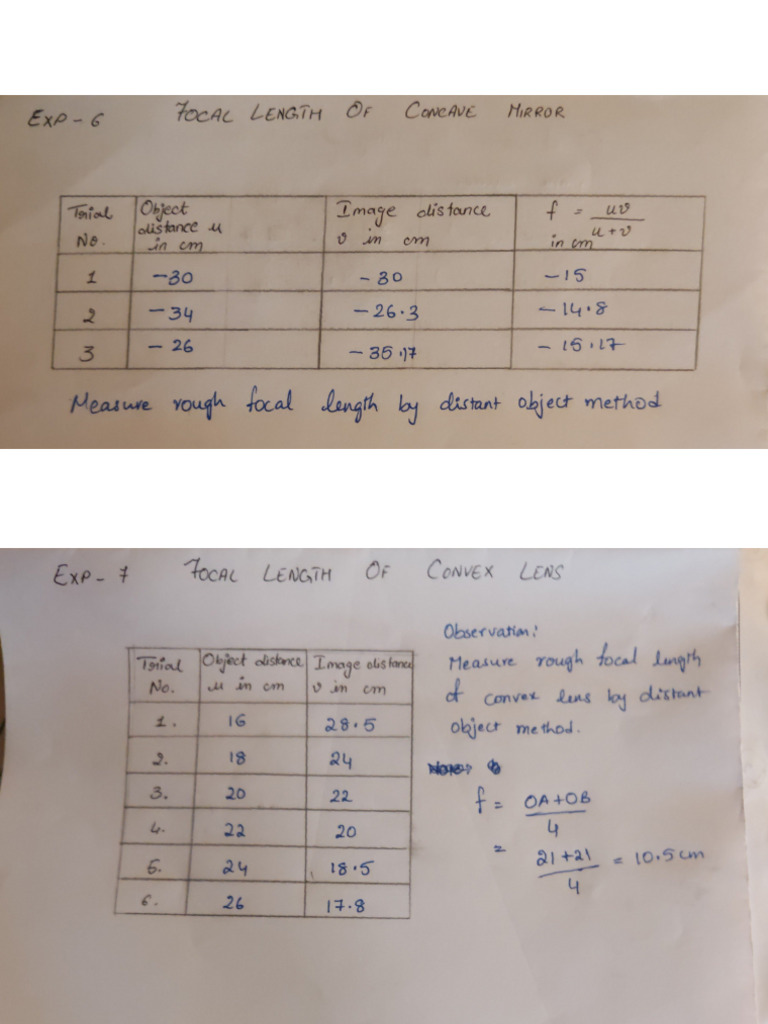 EXP - 6 FOCAL LENGTH OF CONCAVE MIRROR
Trial No. | Object distance u in cm | Image distance v in cm | f = uv / u+v in cm
1 | -30 | -30 | -15
2 | -34 | -26.3 | -14.8
3 | -26 | -35.17 | -15.17
Measure rough focal length by distant object method
EXP - 7 FOCAL LENGTH OF CONVEX LENS
Trial No. | Object distance u in cm | Image distance v in cm
1. | 16 | 28.5
2. | 18 | 24
3. | 20 | 22
4. | 22 | 20
5. | 24 | 18.5
6. | 26 | 17.8
Observation:
Measure rough focal length
of convex lens by distant
object method.
f = OA+OB / 4
= 21+21 / 4 = 10.5 cm